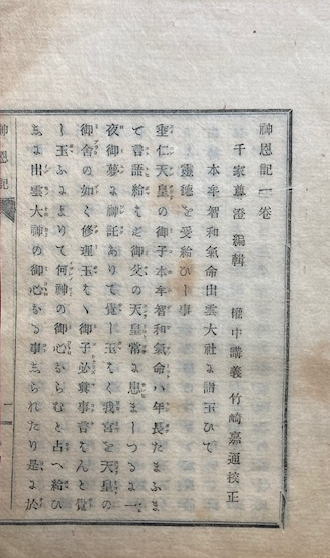 神恩記一卷
千家尊澄 編輯 權中講義 竹崎嘉通 校正
本牟智和氣命出雲大社に詣玉ひて
靈德を受給ひし事
垂仁天皇の御子本牟智和氣命ハ年長たまふまで
言語給はず御父の天皇常に患ましつるに一
夜御夢に神託ありて覺し玉はく我宮を天皇の
御舍の如く修理玉はゝ御子必眞事言なんと覺
し玉ふによりて何神の御心ならむと占へ給ひ
しに出雲大神の御心なる事しられたり是に於
神恩記
一